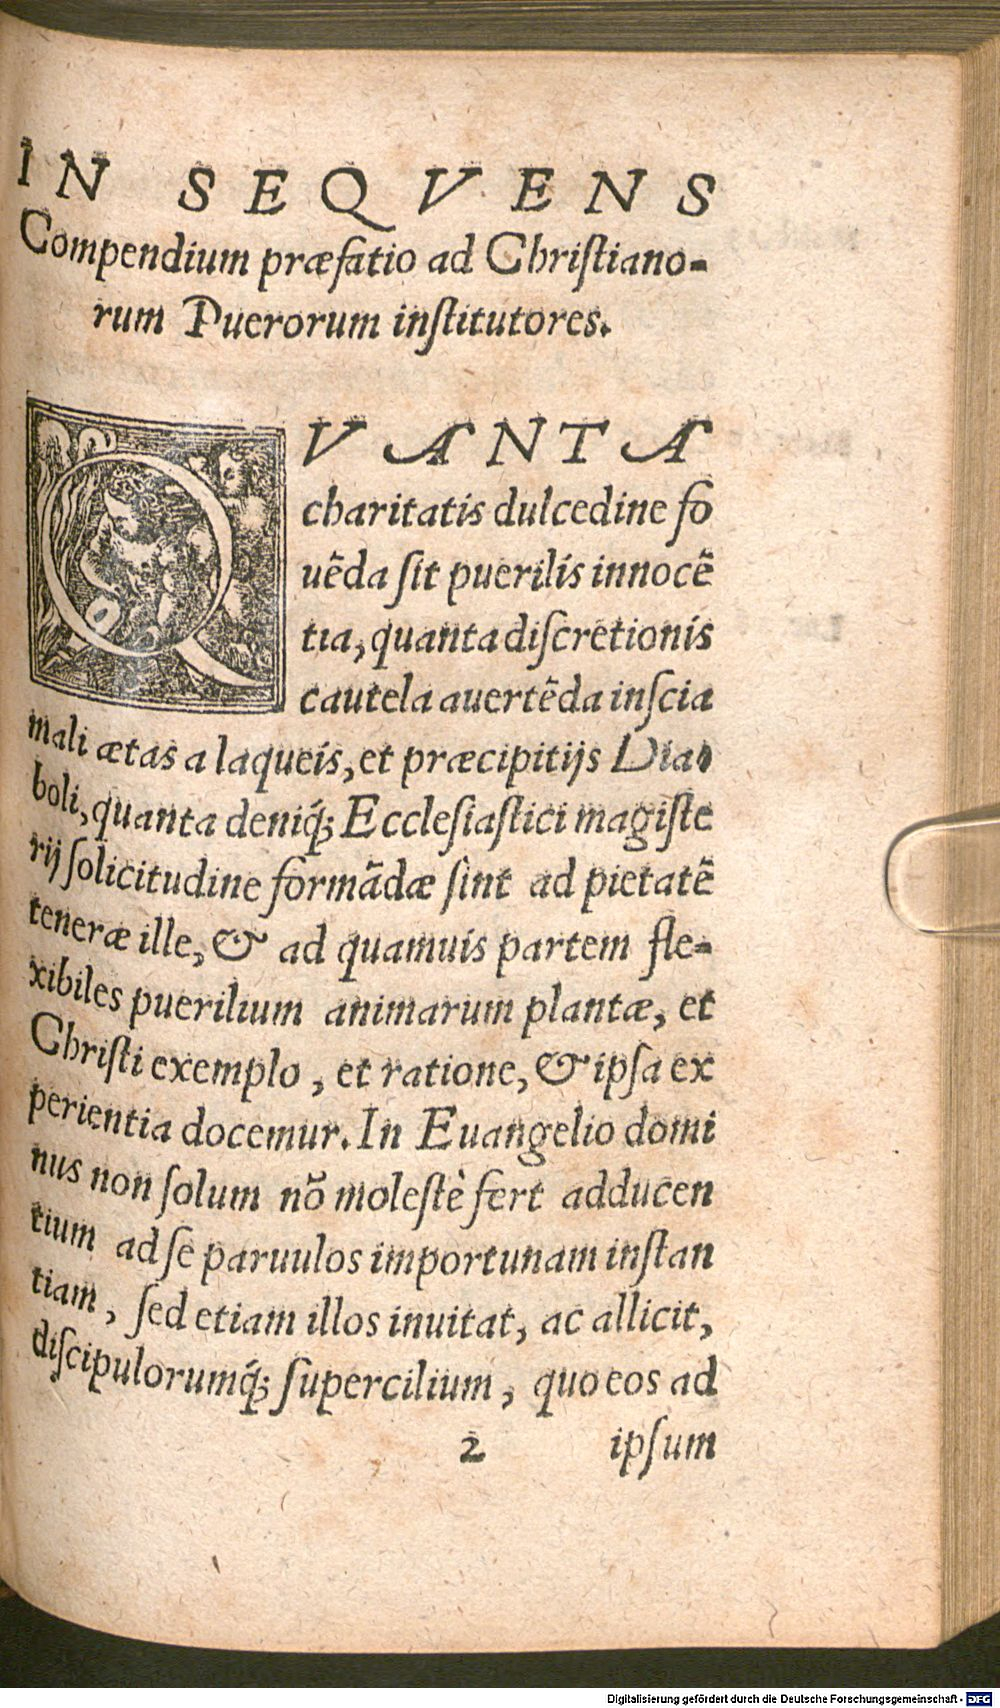 IN SEQVENS
Compendium præfatio ad Christiano-
rum Puerorum institutores.
QVANTA
charitatis dulcedine fo
uẽda sit puerilis innocẽ
tia, quanta discretionis
cautela auertẽda inscia
mali ætas a laqueis, et præcipitijs Dia-
boli, quanta deniq́; Ecclesiastici magiste
rij solicitudine formãdæ sint ad pietatẽ
teneræ ille, & ad quamuis partem fle-
xibiles puerilium animarum plantæ, et
Christi exemplo, et ratione, & ipsa ex
perientia docemur. In Euangelio domi
nus non solum nõ molestè fert adducen
tium ad se paruulos importunam instan
tiam, sed etiam illos inuitat, ac allicit,
discipulorumq́; supercilium, quo eos ad
2 ipsum
Digitalisierung gefördert durch die Deutsche Forschungsgemeinschaft - DFG